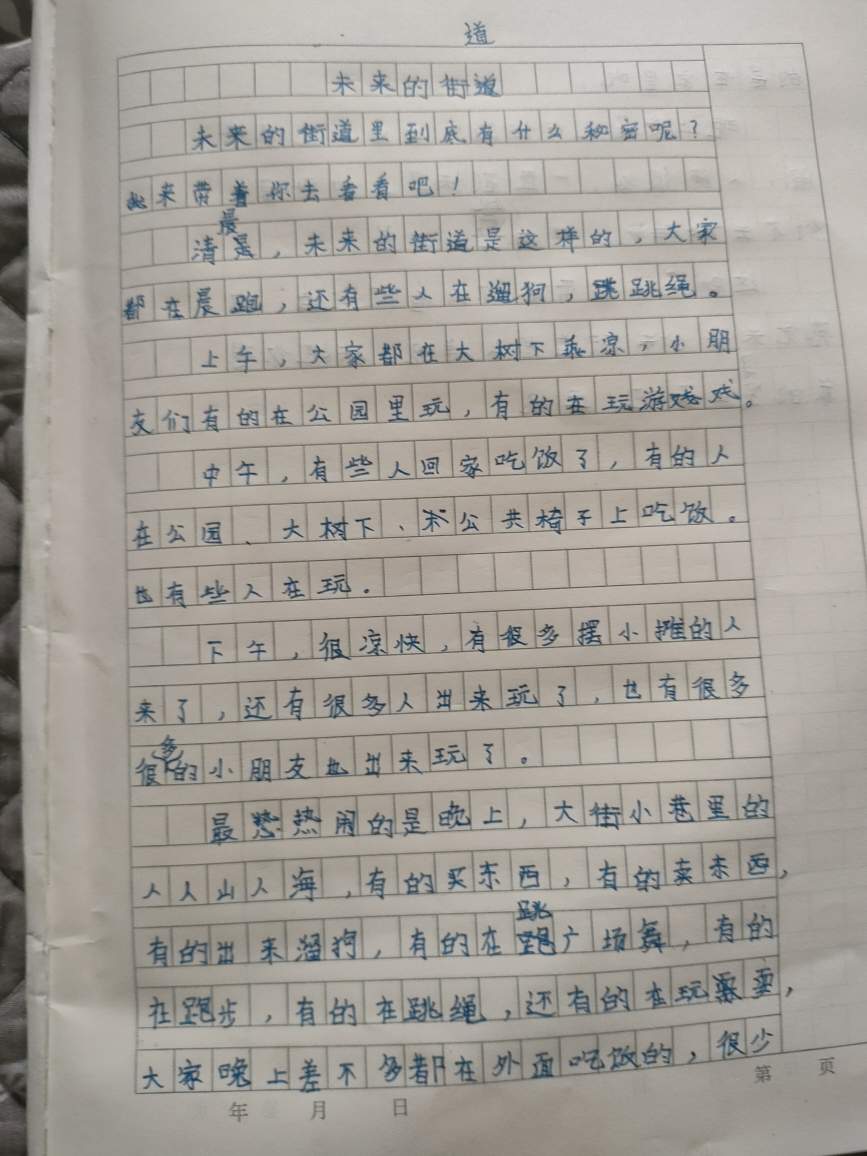 道
未来的街道
未来的街道里到底有什么秘密呢？
来带着你去看看吧！
晨
清，未来的街道是这样的，大家
都在晨跑，还有些人在遛狗，跳跳绳。
上午，大家都在大树下乘凉，小朋
友们有的在公园里玩，有的在玩游戏戏。
中午，有些人回家吃饭了，有的人
在公园、大树下、公共椅子上吃饭。
也有些人在玩。
下午，很凉快，有很多摆小摊的人
来了，还有很多人出来玩了，也有很多
多
很的小朋友也出来玩了。
最热闹的是晚上，大街小巷里的
人人山人海，有的买东西，有的卖东西，
跳
有的出来遛狗，有的在广场舞，有的
在跑步，有的在跳绳，还有的在玩耍，
大家晚上差不多都在外面吃饭的，很少
年 月 日
第 页